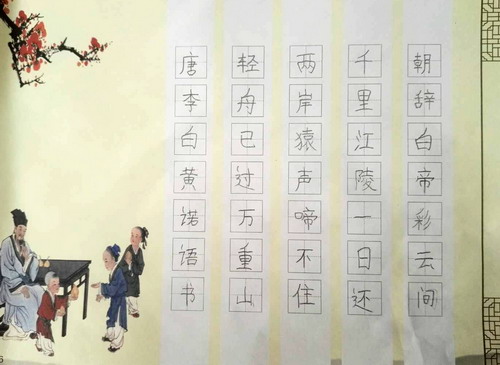 朝辞白帝彩云间
千里江陵一日还
两岸猿声啼不住
轻舟已过万重山
唐李白黄诺语书